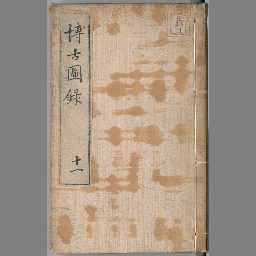 博古圖錄
十一